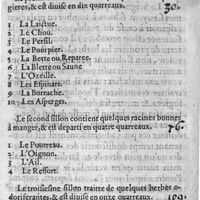 gieres, & est divisé en dix quarreaux. 30.
1 La Laictue.
2 Le Chou.
3 Le Persil.
4 Le Pourpier.
5 La Bette ou Reparee.
6 La Blette ou
7 L'Ozeille.
8 Les Espinars.
9 La Borrache.
10 Les Asperges.
Le second sillon contient quelques racines bonnes
à manger, & est departi en quatre quarreaux. 76.
1 Le Pourreau.
2 L'Oignon.
3 L'Ail.
4 Le Reffort.
Le troisiesme sillon traite de quelques herbes o-
doriferantes, & est divisé en onze quarreaux. 100.